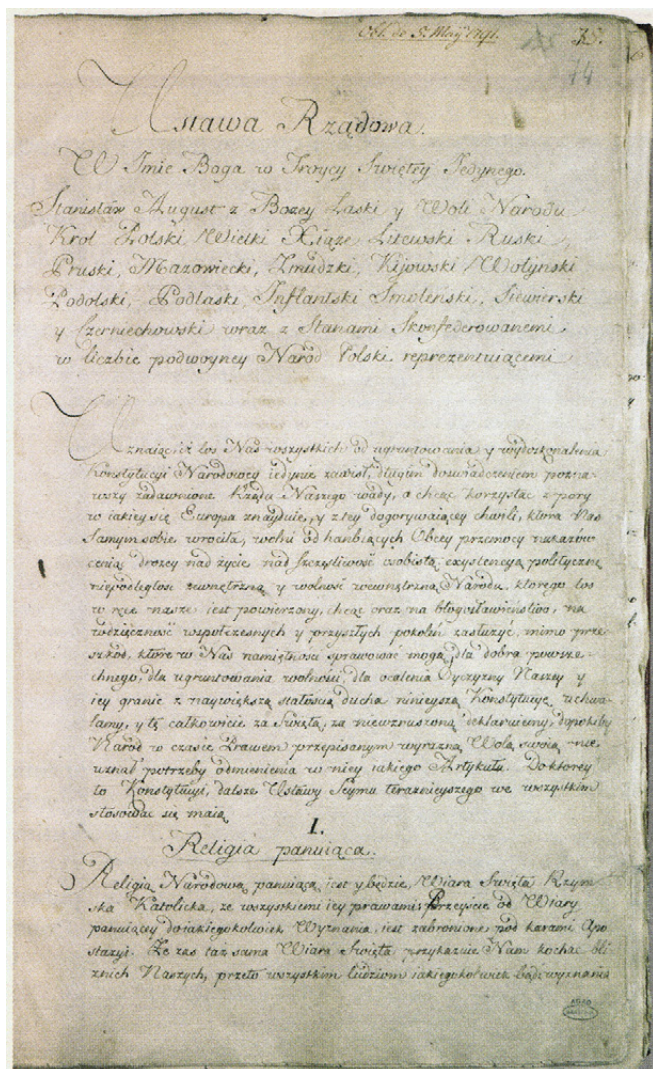 Obl. de 5. Maij 1791.
Ustawa Rządowa.
W Imie Boga w Troycy Swiętey Jedynego.
Stanisław August z Bozey Łaski y Woli Narodu
Krol Polski, Wielki Xiąze Litewski, Ruski,
Pruski, Mazowiecki, Zmudzki, Kijowski, Wołynski
Podolski, Podlaski, Inflantski, Smolenski, Siewierski
y Czerniechowski, wraz z Stanami Skonfederowanemi
w liczbie podwoyney Narod Polski reprezentuiącemi
Uznaiąc, iż los Nas wszystkich od ugruntowania y wydoskonalenia
Konstytucyi Narodowey iedynie zawisł, długim doswiadczeniem pozna-
wszy zadawnione Rządu Naszego wady, a chcąc korzystac z pory
w iakiey się Europa znayduie, y z tey dogorywaiącey chwili, ktora Nas
samym sobie wrociła, wolni od hanbiących Obcey przemocy nakazow
ceniąc drozey nad zycie nad szczęsliwosc osobistą, exystencyą polityczną
niepodległosc zewnętrzną y wolnosc wewnętrzną Narodu, ktorego los
w ręce nasze iest powierzony, chcąc oraz na błogosławienstwo, na
wdzięcznosc wspołczesnych y przyszłych pokolen zasłuzyc, mimo prze-
szkod, ktore w Nas namiętnosci sprawowac mogą, dla dobra powsze-
chnego, dla ugruntowania wolnosci, dla ocalenia Oyczyzny Naszey y
iey granic z naywiększą stałoscią ducha ninieyszą Konstytucyę uchwa-
lamy, y tę całkowicie za Swiętą, za niewzruszoną deklaruiemy, dopokiby
Narod w czasie Prawem przepisanym wyrazną Wolą swoią nie
uznał potrzeby odmienienia w niey iakiego Artykułu. Do ktorey
to Konstytucyi, dalsze Ustawy Seymu teraznieyszego we wszystkim
stosowac się maią
I.
Religia panuiąca.
Religią Narodową panuiącą iest y będzie, Wiara Swięta Rzym-
ska Katolicka, ze wszystkiemi iey prawami. Przeyscie od Wiary
panuiącey do iakiegokolwiek Wyznania, iest zabronione pod karami Apo
stazyi. Ze zas taz sama Wiara Swięta przykazuie Nam kochac bli-
znich Naszych, przeto wszystkim ludziom iakiegokolwiek bądz wyznania